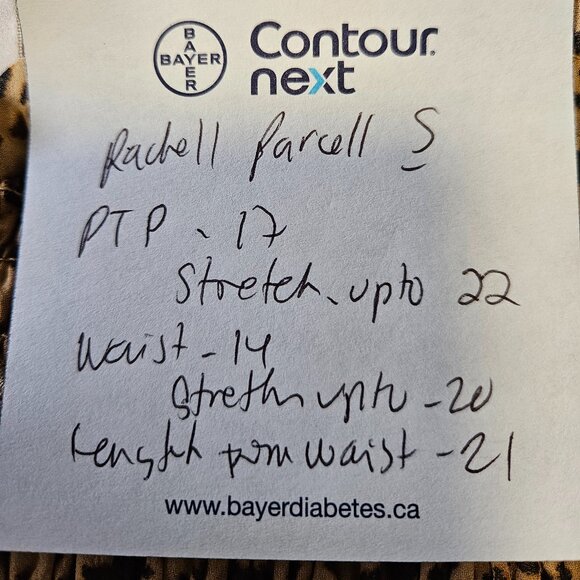 BAYER
BAYER
Contour
next
Rachell Parcell S
PTP - 17
Stretch - upto 22
Waist - 14
Stretch upto - 20
Length from waist - 21
www.bayerdiabetes.ca